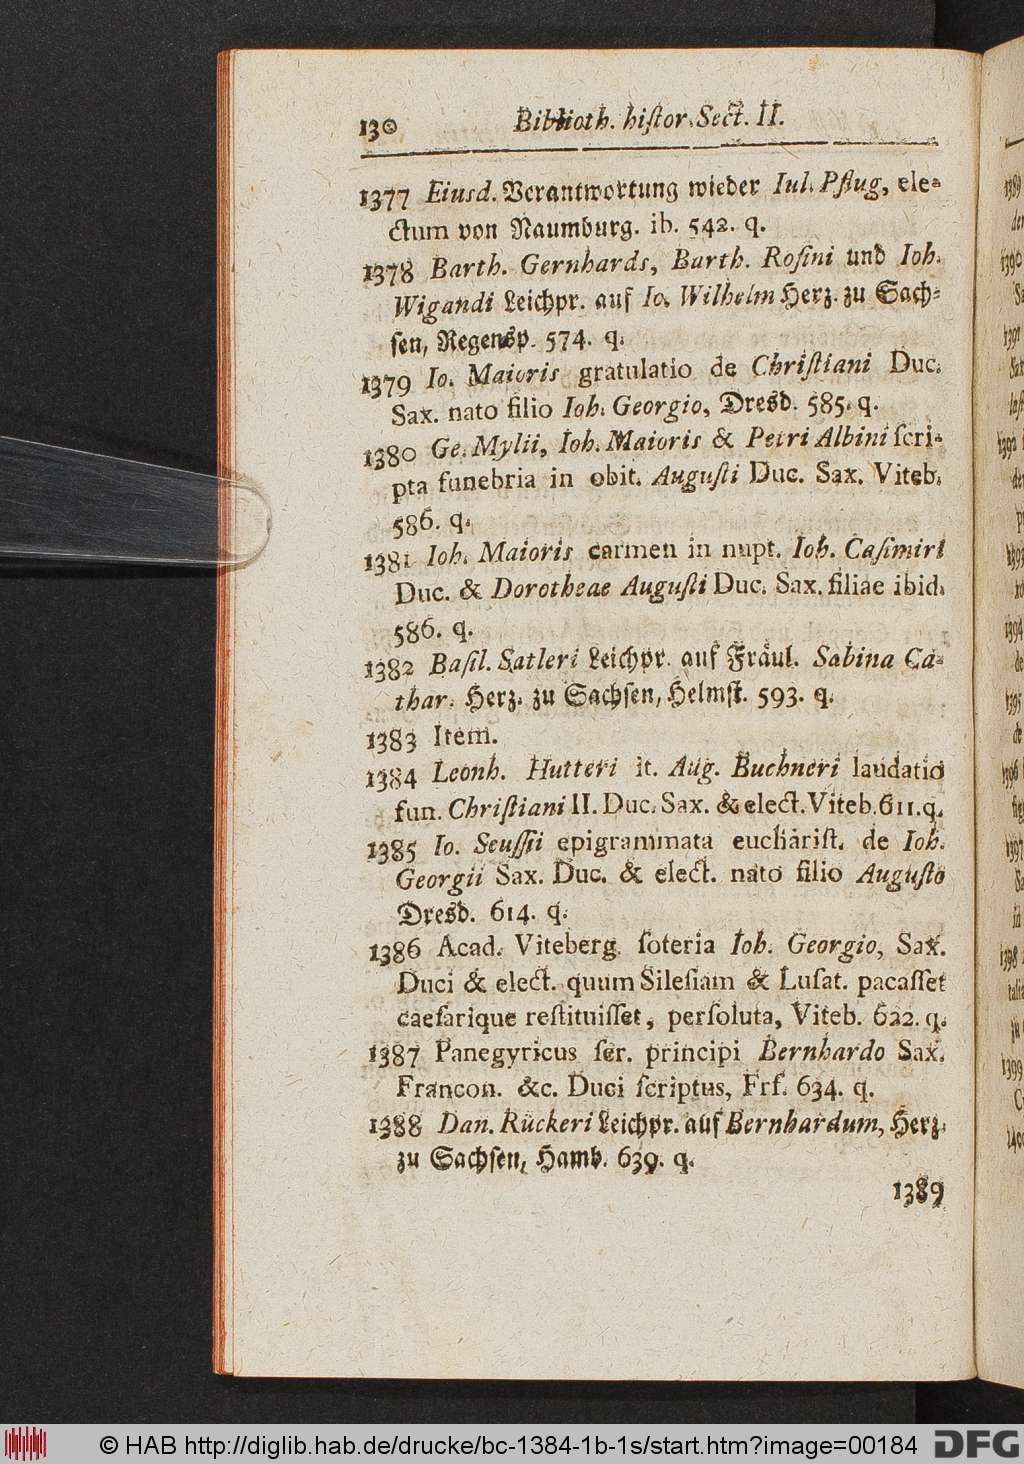 130 Biblioth. histor. Sect. II.
1377 Eiusd. Verantwortung wieder Iul. Pflug, ele-
ctum von Naumburg. ib. 542. q.
1378 Barth. Gernhards, Barth. Rosini und Ioh.
Wigandi Leichpr. auf Io. Wilhelm Herz. zu Sach-
sen, Regensp. 574. q.
1379 Io. Maioris gratulatio de Christiani Duc.
Sax. nato filio Ioh. Georgio, Dresd. 585. q.
1380 Ge. Mylii, Ioh. Maioris & Petri Albini scri-
pta funebria in obit. Augusti Duc. Sax. Viteb.
586. q.
1381 Ioh. Maioris carmen in nupt. Ioh. Casimiri
Duc. & Dorotheae Augusti Duc. Sax. filiae ibid.
586. q.
1382 Basil. Satleri Leichpr. auf Fräul. Sabina Ca-
thar. Herz. zu Sachsen, Helmst. 593. q.
1383 Item.
1384 Leonh. Hutteri it. Aug. Buchneri laudatio
fun. Christiani II. Duc. Sax. & elect. Viteb. 611. q.
1385 Io. Seussii epigrammata eucharist. de Ioh.
Georgii Sax. Duc. & elect. nato filio Augusto
Dresd. 614. q.
1386 Acad. Viteberg. soteria Ioh. Georgio, Sax.
Duci & elect. quum Silesiam & Lusat. pacasset
caesarique restituisset, persoluta, Viteb. 622. q.
1387 Panegyricus ser. principi Bernhardo Sax.
Francon. &c. Duci scriptus, Frf. 634. q.
1388 Dan. Rückeri Leichpr. auf Bernhardum, Herz.
zu Sachsen, Hamb. 639. q.
1389
© HAB http://diglib.hab.de/drucke/bc-1384-1b-1s/start.htm?image=00184 DFG